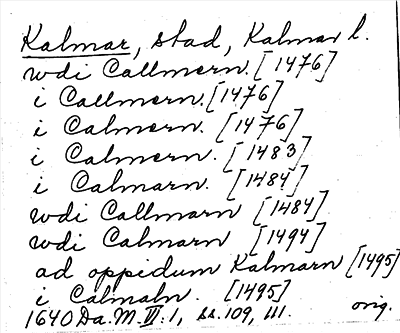 Kalmar, stad, Kalmar l.
wdi Callmern. [1476]
i Callmern. [1476]
i Calmern. [1476]
i Calmern. [1483]
i Calmarn. [1484]
wdi Callmarn [1484]
wdi Calmarn [1494]
ad oppidum Kalmarn [1495]
i Calmaln. [1495]
1640 Da. M. III: 1, ss. 109, 111. orig.